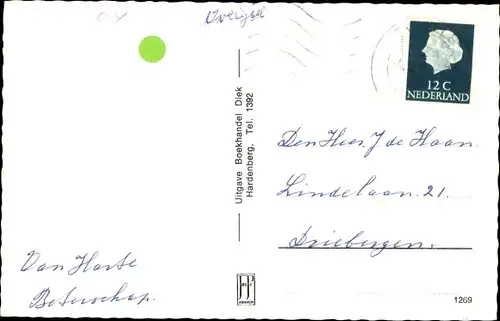 Overijsel
12 C
NEDERLAND
Uitgave Boekhandel Diek
Hardenberg, Tel. 1392
Den Heer J de Haan.
Lindelaan 21.
Driebergen.
Van Harte
Beterschap.
1269